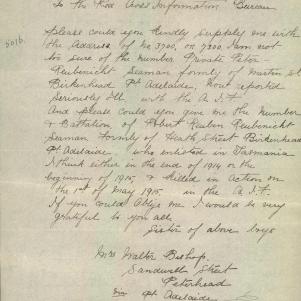 To the Red Cross Information Bureau
Please could you kindly supply me with
the Address of No 3700, or 7200, I am not
too sure of the number Private Peter
Reubenicht Seaman formly of Martin St
Birkenhead Pt Adelaide, Now reported
Seriously Ill with the A.I.F.
And please could you give me the Number
& Battalion of Albert Reuben Reubenicht
Seaman Formly of Heath Street Birkenhead
Pt. Adelaide, who enlisted in Tasmania
I think either in the end of 1914 or the
beginning of 1915, & Killed in Action on
the 1st of May 1915. in the A.I.F.
If you could Oblige me I would be very
grateful to you all.
Sister of above boys
Mrs Walter Bishop,
Sandwell Street
Peterhead
Pt Adelaide